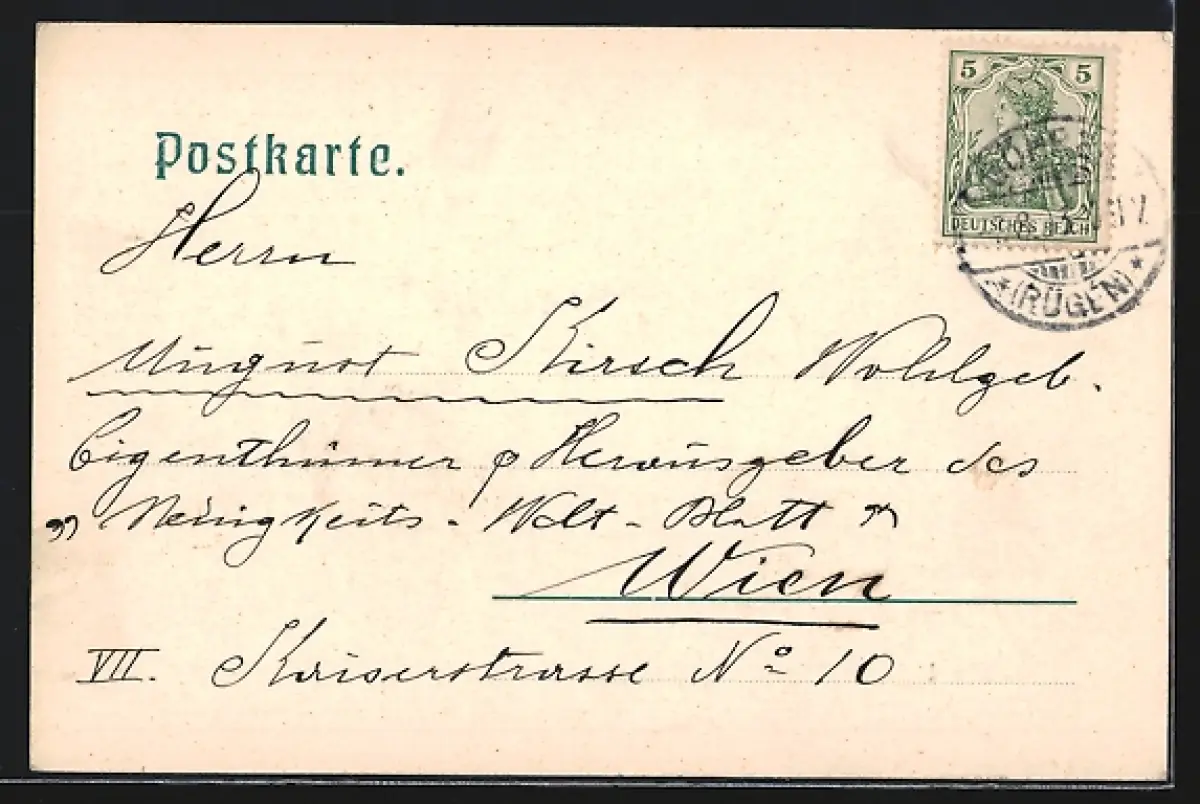 5 5
DEUTSCHES REICH
(RÜGEN)
Postkarte.
Herrn
August Kirsch Wohlgeb.
Eigenthümer & Herausgeber des
„Neuigkeits-Welt-Blatt"
Wien
VII. Kaiserstrasse No 10